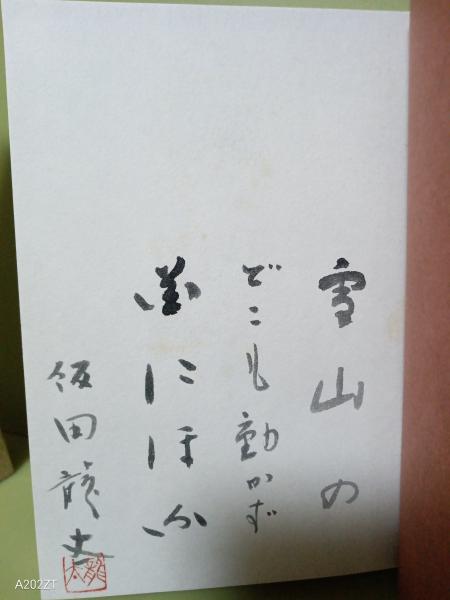 雪山の
どこも動かず
花にほふ
飯田龍太
龍太
A202ZT